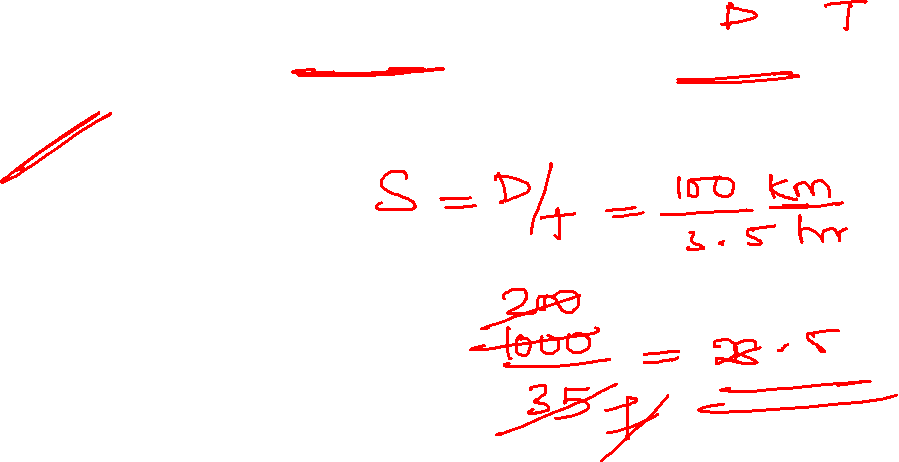 D T
S = D/t = 100 km / 3.5 hr
200
1000 / 35 7 = 28.5